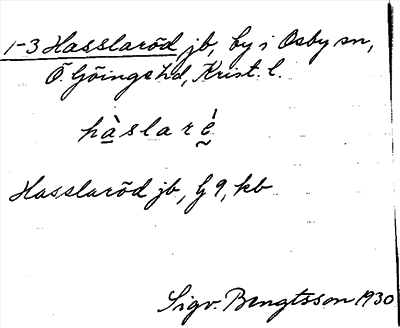 1-3 Hasslaröd, jb, by i Osby sn,
Ö. Göinge hd, Krist. l.
hàslaré
Hasslaröd jb, G 9, kb
Sigv. Bengtsson 1930